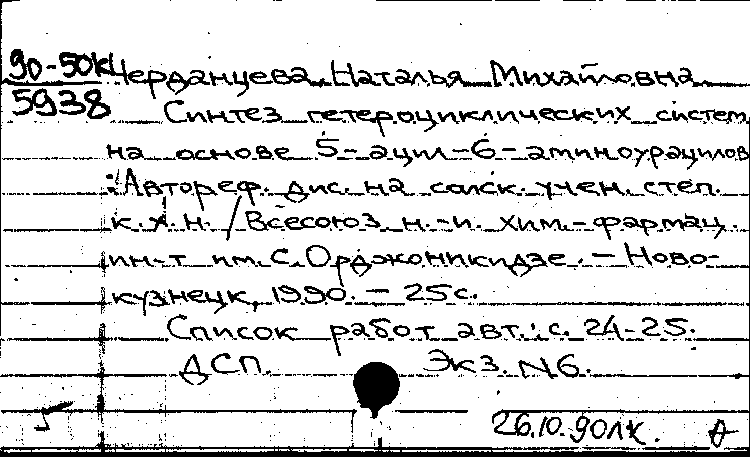 90-50К Черданцева Наталья Михайловна
5938
Синтез гетероциклических систем
на основе 5-ацил-6-аминоурацилов
: Автореф. дис. на соиск. учен. степ.
к.х.н. / Всесоюз. н.-и. хим.-фармац.
ин-т им. С. Орджоникидзе. – Ново-
кузнецк, 1990. – 25с.
Список работ авт.: с. 24-25.
ДСП. Экз. N6.
26.10.90